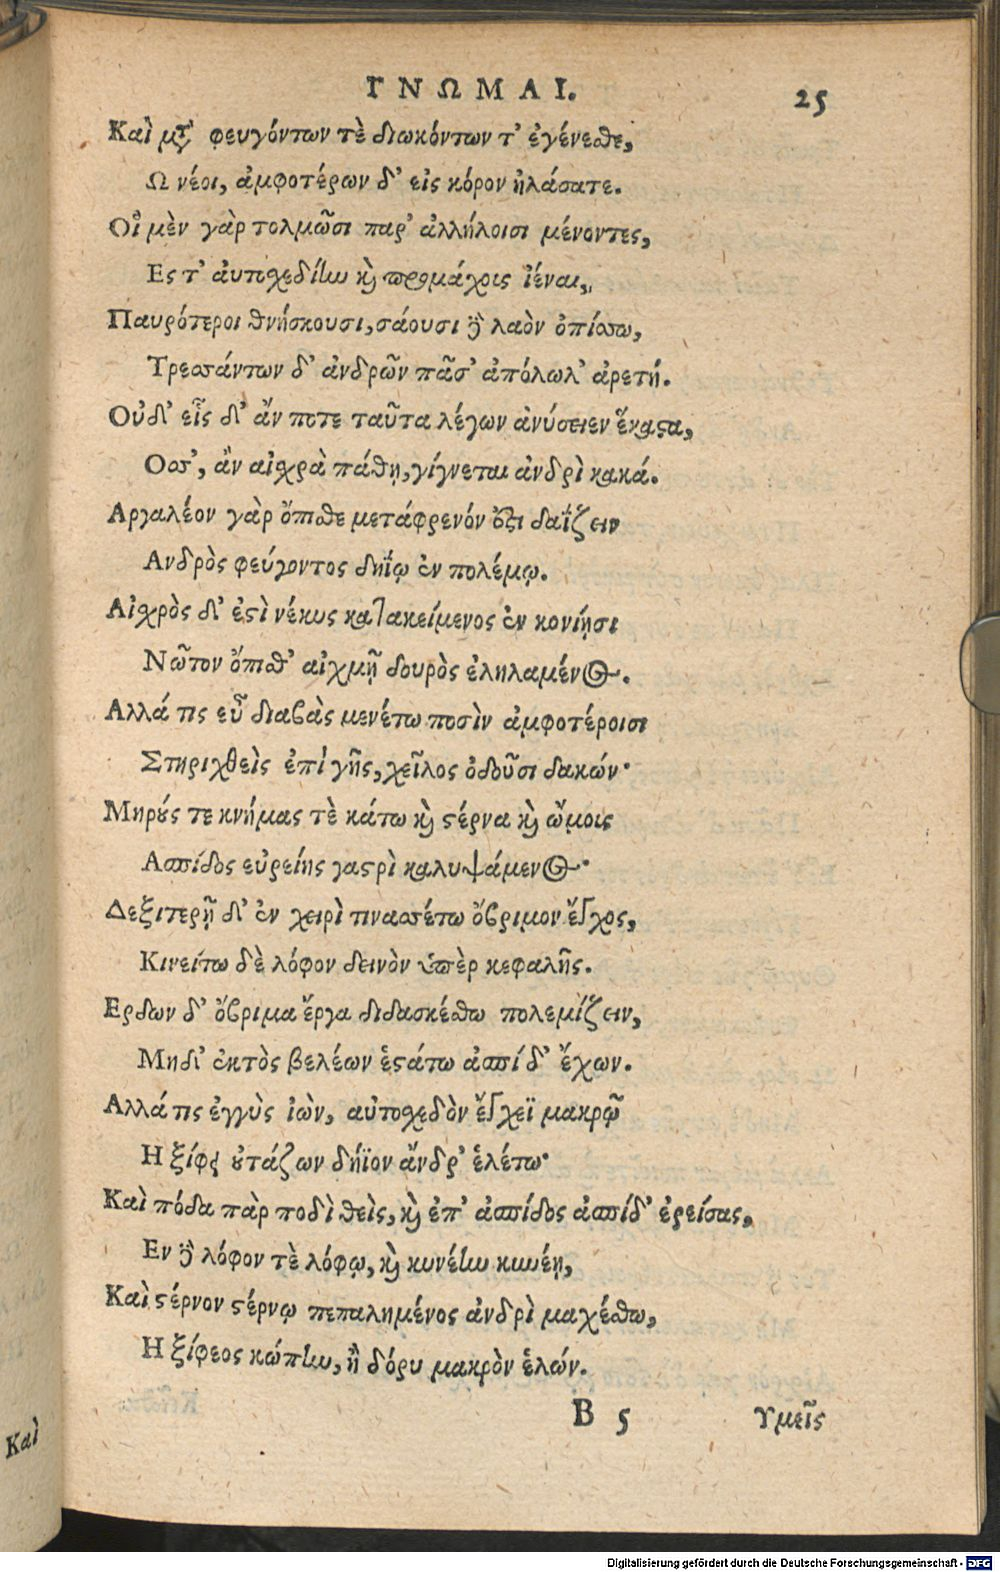 ΓΝΩΜΑΙ. 25
Καὶ μετ' φευγόντων τὲ διωκόντων τ' ἐγένεσθε,
Ω νέοι, ἀμφοτέρων δ' εἰς κόρον ἠλάσατε.
Οἳ μὲν γὰρ τολμῶσι παρ' ἀλλήλοισι μένοντες,
Ες τ' ἀυτοσχεδίην καὶ προμάχοις ἰέναι,
Παυρότεροι θνήσκουσι, σάουσι δὲ λαὸν ὀπίσσω,
Τρεσσάντων δ' ἀνδρῶν πᾶσ' ἀπόλωλ' ἀρετή.
Οὐδ' εἷς δ' ἄν ποτε ταῦτα λέγων ἀνύσειεν ἕκαστα,
Οσσ', ἂν αἰσχρὰ πάθῃ, γίγνεται ἀνδρὶ κακά.
Αργαλέον γὰρ ὄπισθε μετάφρενόν ὅστι δαΐζειν
Ανδρὸς φεύγοντος δηΐῳ ἐν πολέμῳ.
Αἰσχρὸς δ' ἐστὶ νέκυς κατακείμενος ἐν κονίῃσι
Νῶτον ὄπισθ' αἰχμῇ δουρὸς ἐληλαμένος.
Αλλά τις εὖ διαβὰς μενέτω ποσὶν ἀμφοτέροισι
Στηριχθεὶς ἐπὶ γῆς, χεῖλος ὀδοῦσι δακών·
Μηρούς τε κνήμας τὲ κάτω καὶ στέρνα καὶ ὤμοις
Ασπίδος εὐρείης γαστρὶ καλυψάμενος·
Δεξιτερῇ δ' ἐν χειρὶ τινασσέτω ὄβριμον ἔγχος,
Κινείτω δὲ λόφον δεινὸν ὑπὲρ κεφαλῆς.
Ερδων δ' ὄβριμα ἔργα διδασκέσθω πολεμίζειν,
Μηδ' ἐκτὸς βελέων ἑστάτω ἀσπίδ' ἔχων.
Αλλά τις ἐγγὺς ἰὼν, αὐτοσχεδὸν ἔγχεϊ μακρῷ
Η ξίφει οὐτάζων δήϊον ἄνδρ' ἑλέτω·
Καὶ πόδα πὰρ ποδὶ θεὶς, καὶ ἐπ' ἀσπίδος ἀσπίδ' ἐρείσας,
Εν δὲ λόφον τὲ λόφῳ, καὶ κυνέην κυνέῃ,
Καὶ στέρνον στέρνῳ πεπαλημένος ἀνδρὶ μαχέσθω,
Η ξίφεος κώπην, ἢ δόρυ μακρὸν ἑλών.
B 5 Υμεῖς
Καὶ
Digitalisierung gefördert durch die Deutsche Forschungsgemeinschaft - DFG